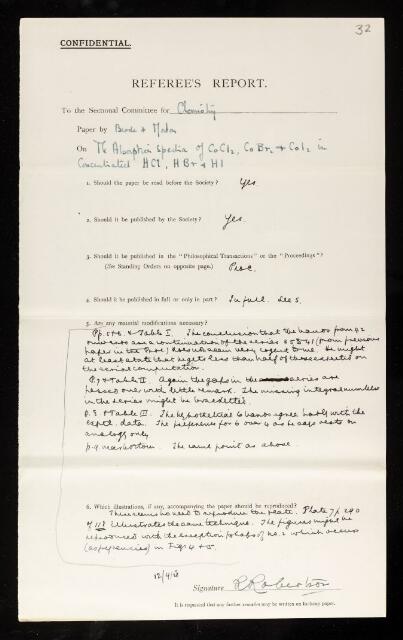 32
CONFIDENTIAL.
REFEREE'S REPORT.
To the Sectional Committee for Chemistry
Paper by Brode &
On The Absorption Spectra of CoCl2, CoBr2 & CoI2 in
Concentrated HCl, HBr & HI
1. Should the paper be read before the Society? Yes
2. Should it be published by the Society? Yes.
3. Should it be published in the "Philosophical Transactions" or the "Proceedings"?
(See Standing Orders on opposite page.) Proc.
4. Should it be published in full or only in part? In full. See 5.
5. Are any material modifications necessary?
Pp. 5 & 6. & Table I. The conclusion that the bands from 42
are a continuation of the series 35 to 41 (from previous
paper in the Proc) does not seem very cogent to me. He might
at least state that he gets less than half of those expected on
the serial computation.
P. 7 & Table II Again the gaps in the series are
passed over with little remark. The missing integral numbers
in the series might be bracketted.
p. 8 & Table III. The hypothetical 6 bands agree hardly with the
exptl. data. The preference for 6 over 4 as he says rests on
analogy only
p. 9 The same point as above.
6. Which illustrations, if any, accompanying the paper should be reproduced?
There seems no need to reproduce the plate. Plate 7, p. 240
of 118 illustrates the same technique. The figures might be
reproduced with the exception perhaps of no. 2 which occurs
in Figs 4 & 5.
12/4/28
Signature R Robertson
It is requested that any further remarks may be written on fly-leaf page.